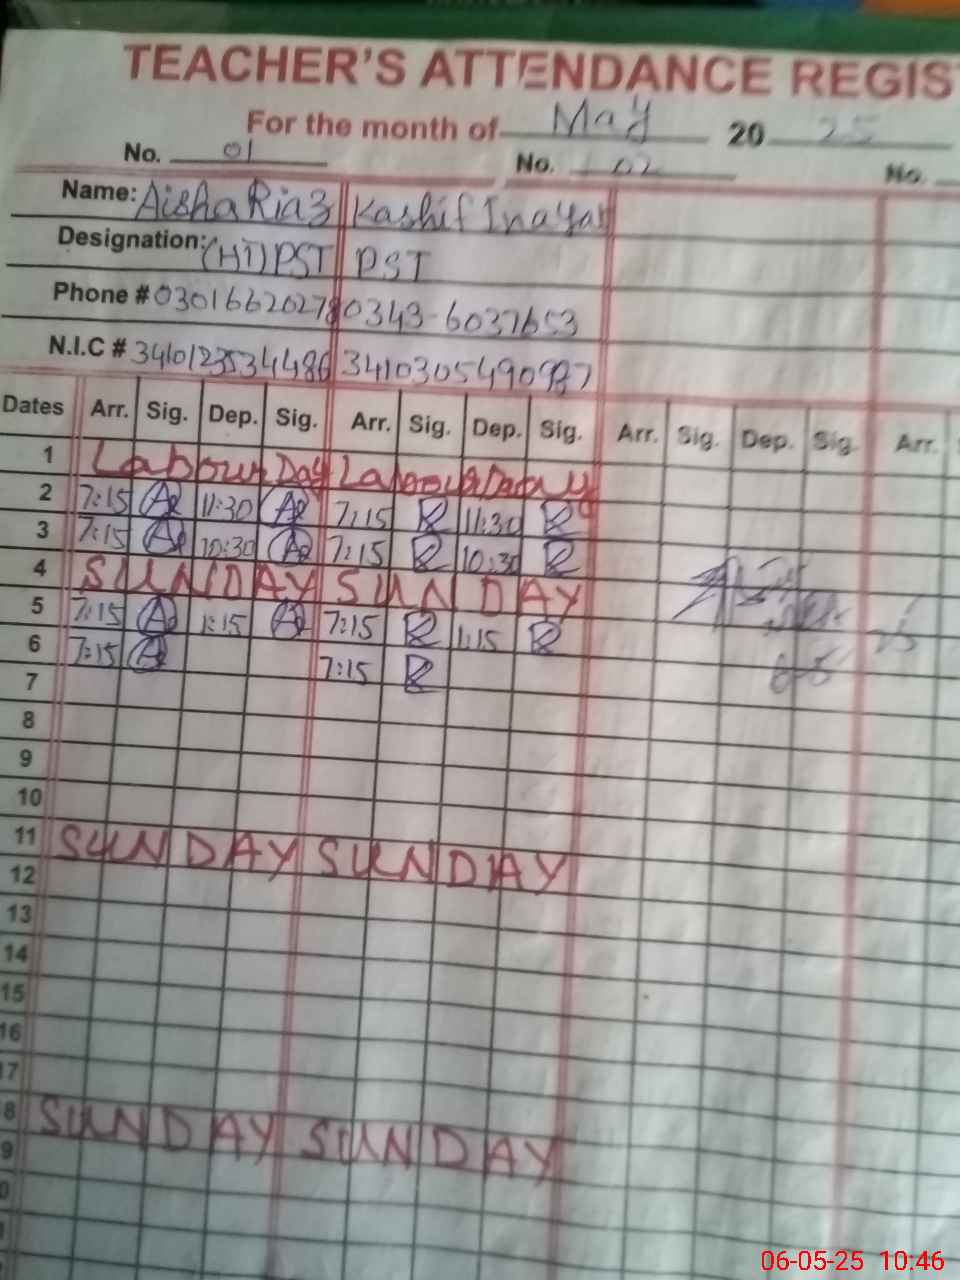 TEACHER'S ATTENDANCE REGIS
For the month of May 20 25
No. 01 No. 02 No.
Name: Aisha Riaz Kashif Inayat
Designation: (HT) PST PST
Phone # 03016620278 0343-6037653
N.I.C # 3410123534486 3410305490987
Dates Arr. Sig. Dep. Sig. Arr. Sig. Dep. Sig. Arr. Sig. Dep. Sig. Arr.
1 Labour Day Labour Day
2 7:15 11:30 7:15 11:30
3 7:15 10:30 7:15 10:30
4 SUNDAY SUNDAY
5 7:15 1:15 7:15 1:15
6 7:15 7:15
7
8
9
10
11 SUNDAY SUNDAY
12
13
14
15
16
17
8 SUNDAY SUNDAY
9
0
06-05-25 10:46